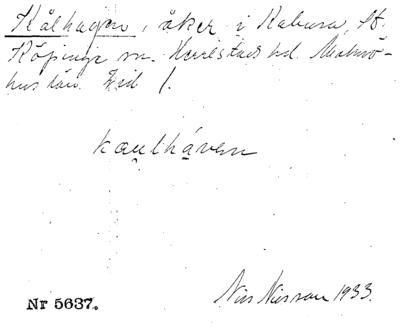 Kålhagen, åker i Kabusa, St.
Köpinge sn. Herrestads hd. Malmö-
hus län. Led 1.
kaulhaven
Nils Nilsson 1933.
Nr 5637.